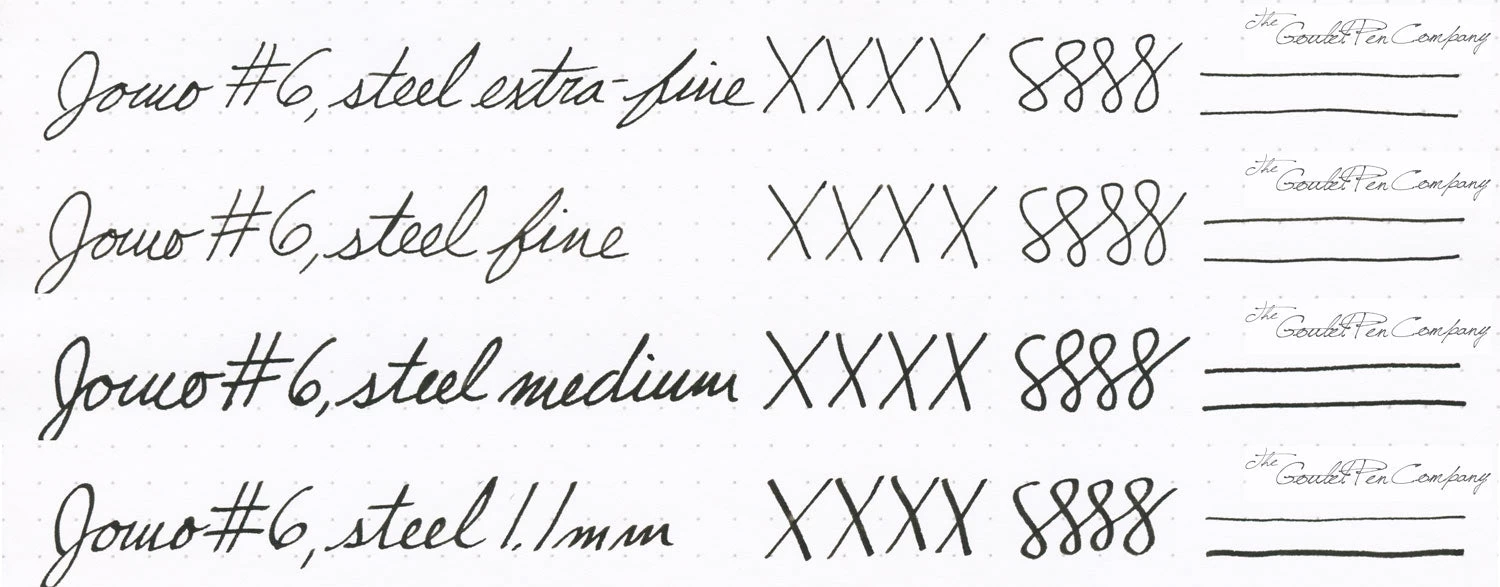 Jowo #6, steel extra-fine XXXX 8888 The Goulet Pen Company
Jowo #6, steel fine XXXX 8888 The Goulet Pen Company
Jowo #6, steel medium XXXX 8888 The Goulet Pen Company
Jowo #6, steel 1.1mm XXXX 8888 The Goulet Pen Company